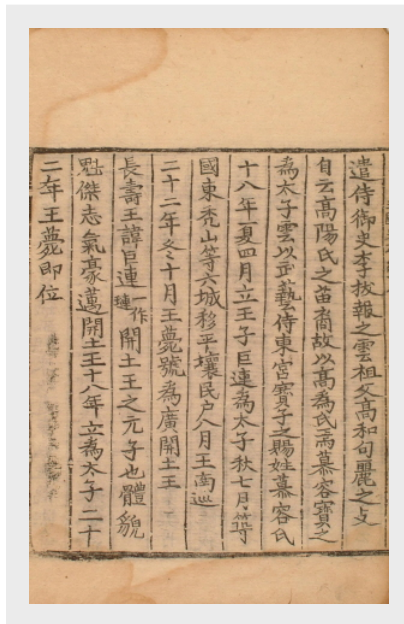 遣侍御史李拔報之雲祖父高和句麗之攴
自云高陽氏之苗裔故以高為氏焉慕容寶之
為太子雲以武藝侍東宮寶子之賜姓慕容氏
十八年夏四月立王子巨連為太子秋七月築
國東禿山等六城移平壤民户八月王南巡
二十二年冬十月王薨號為廣開土王
長壽王諱巨連一作璉開土王之元子也體貌
魁傑志氣豪邁開土王十八年立為太子二十
二年王薨即位